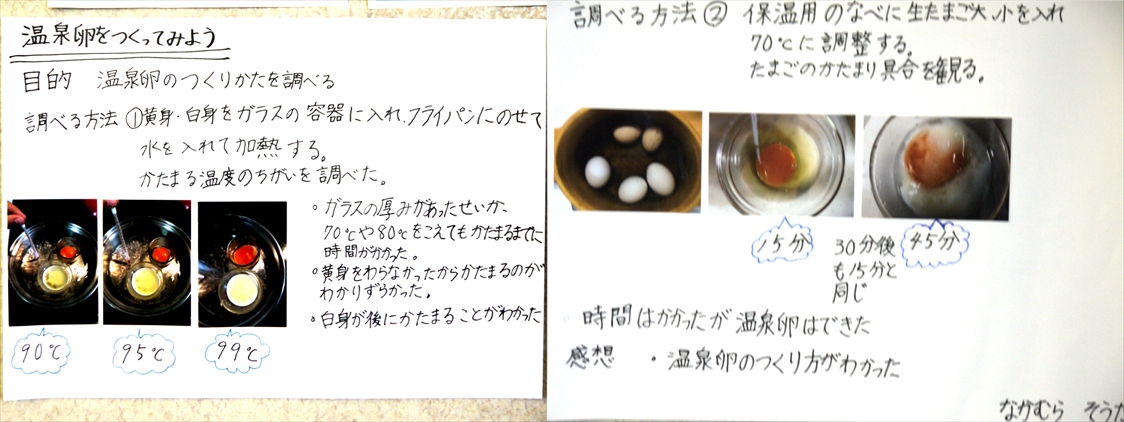 温泉卵をつくってみよう
目的 温泉卵のつくりかたを調べる
調べる方法 ①黄身・白身をガラスの容器に入れ、フライパンにのせて
水を入れて加熱する。
かたまる温度のちがいを調べた。
。ガラスの厚みがあったせいか、
70℃や80℃をこえてもかたまるまでに
時間がかかった。
。黄身をわらなかったからかたまるのが
わかりずらかった。
。白身が後にかたまることがわかった
90℃ 95℃ 99℃
調べる方法② 保温用のなべに生たまご大、小を入れ
70℃に調整する。
たまごのかたまり具合を観る。
15分 45分
30分後
も15分と
同じ
時間はかかったが温泉卵はできた
感想 ・温泉卵のつくり方がわかった
なかむら そうた